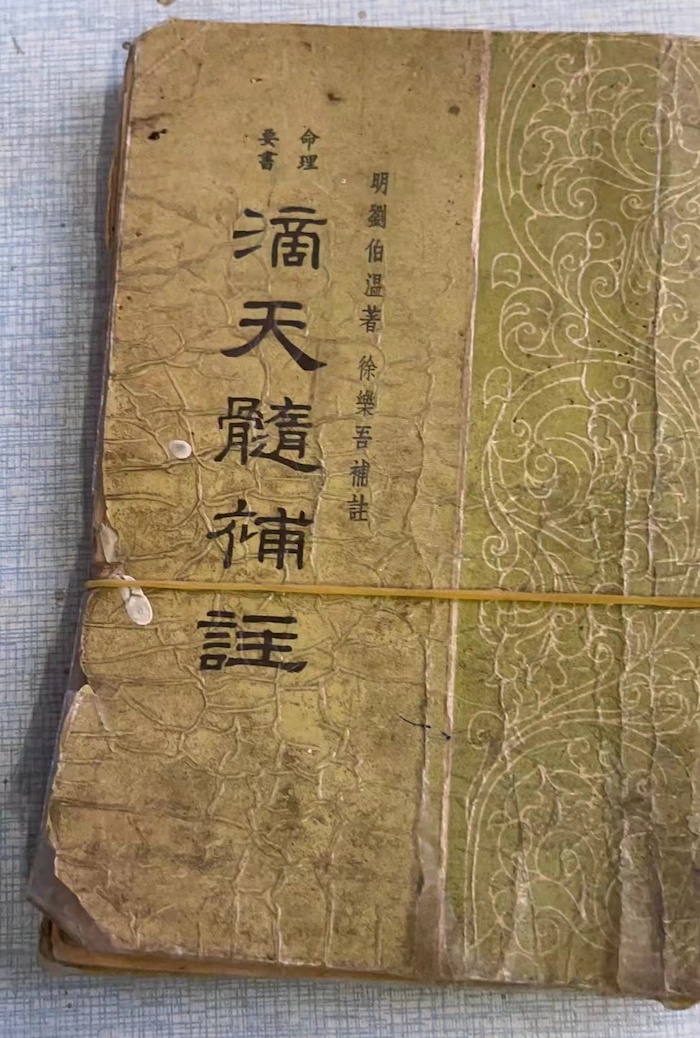 明劉伯溫著 徐樂吾補註
命理
要書
滴天髓補註